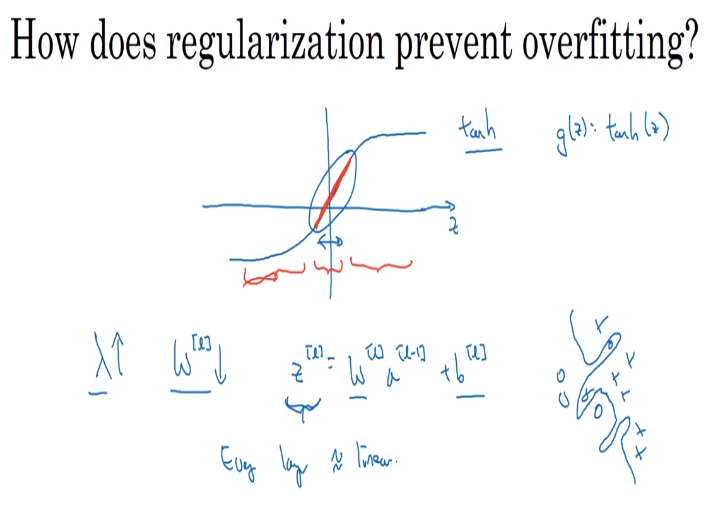 How does regularization prevent overfitting?
tanh g(z): tanh(z)
z
λ↑ W^[l]↓ z^[l] = W^[l] a^[l-1] + b^[l]
Every layer ≈ linear.